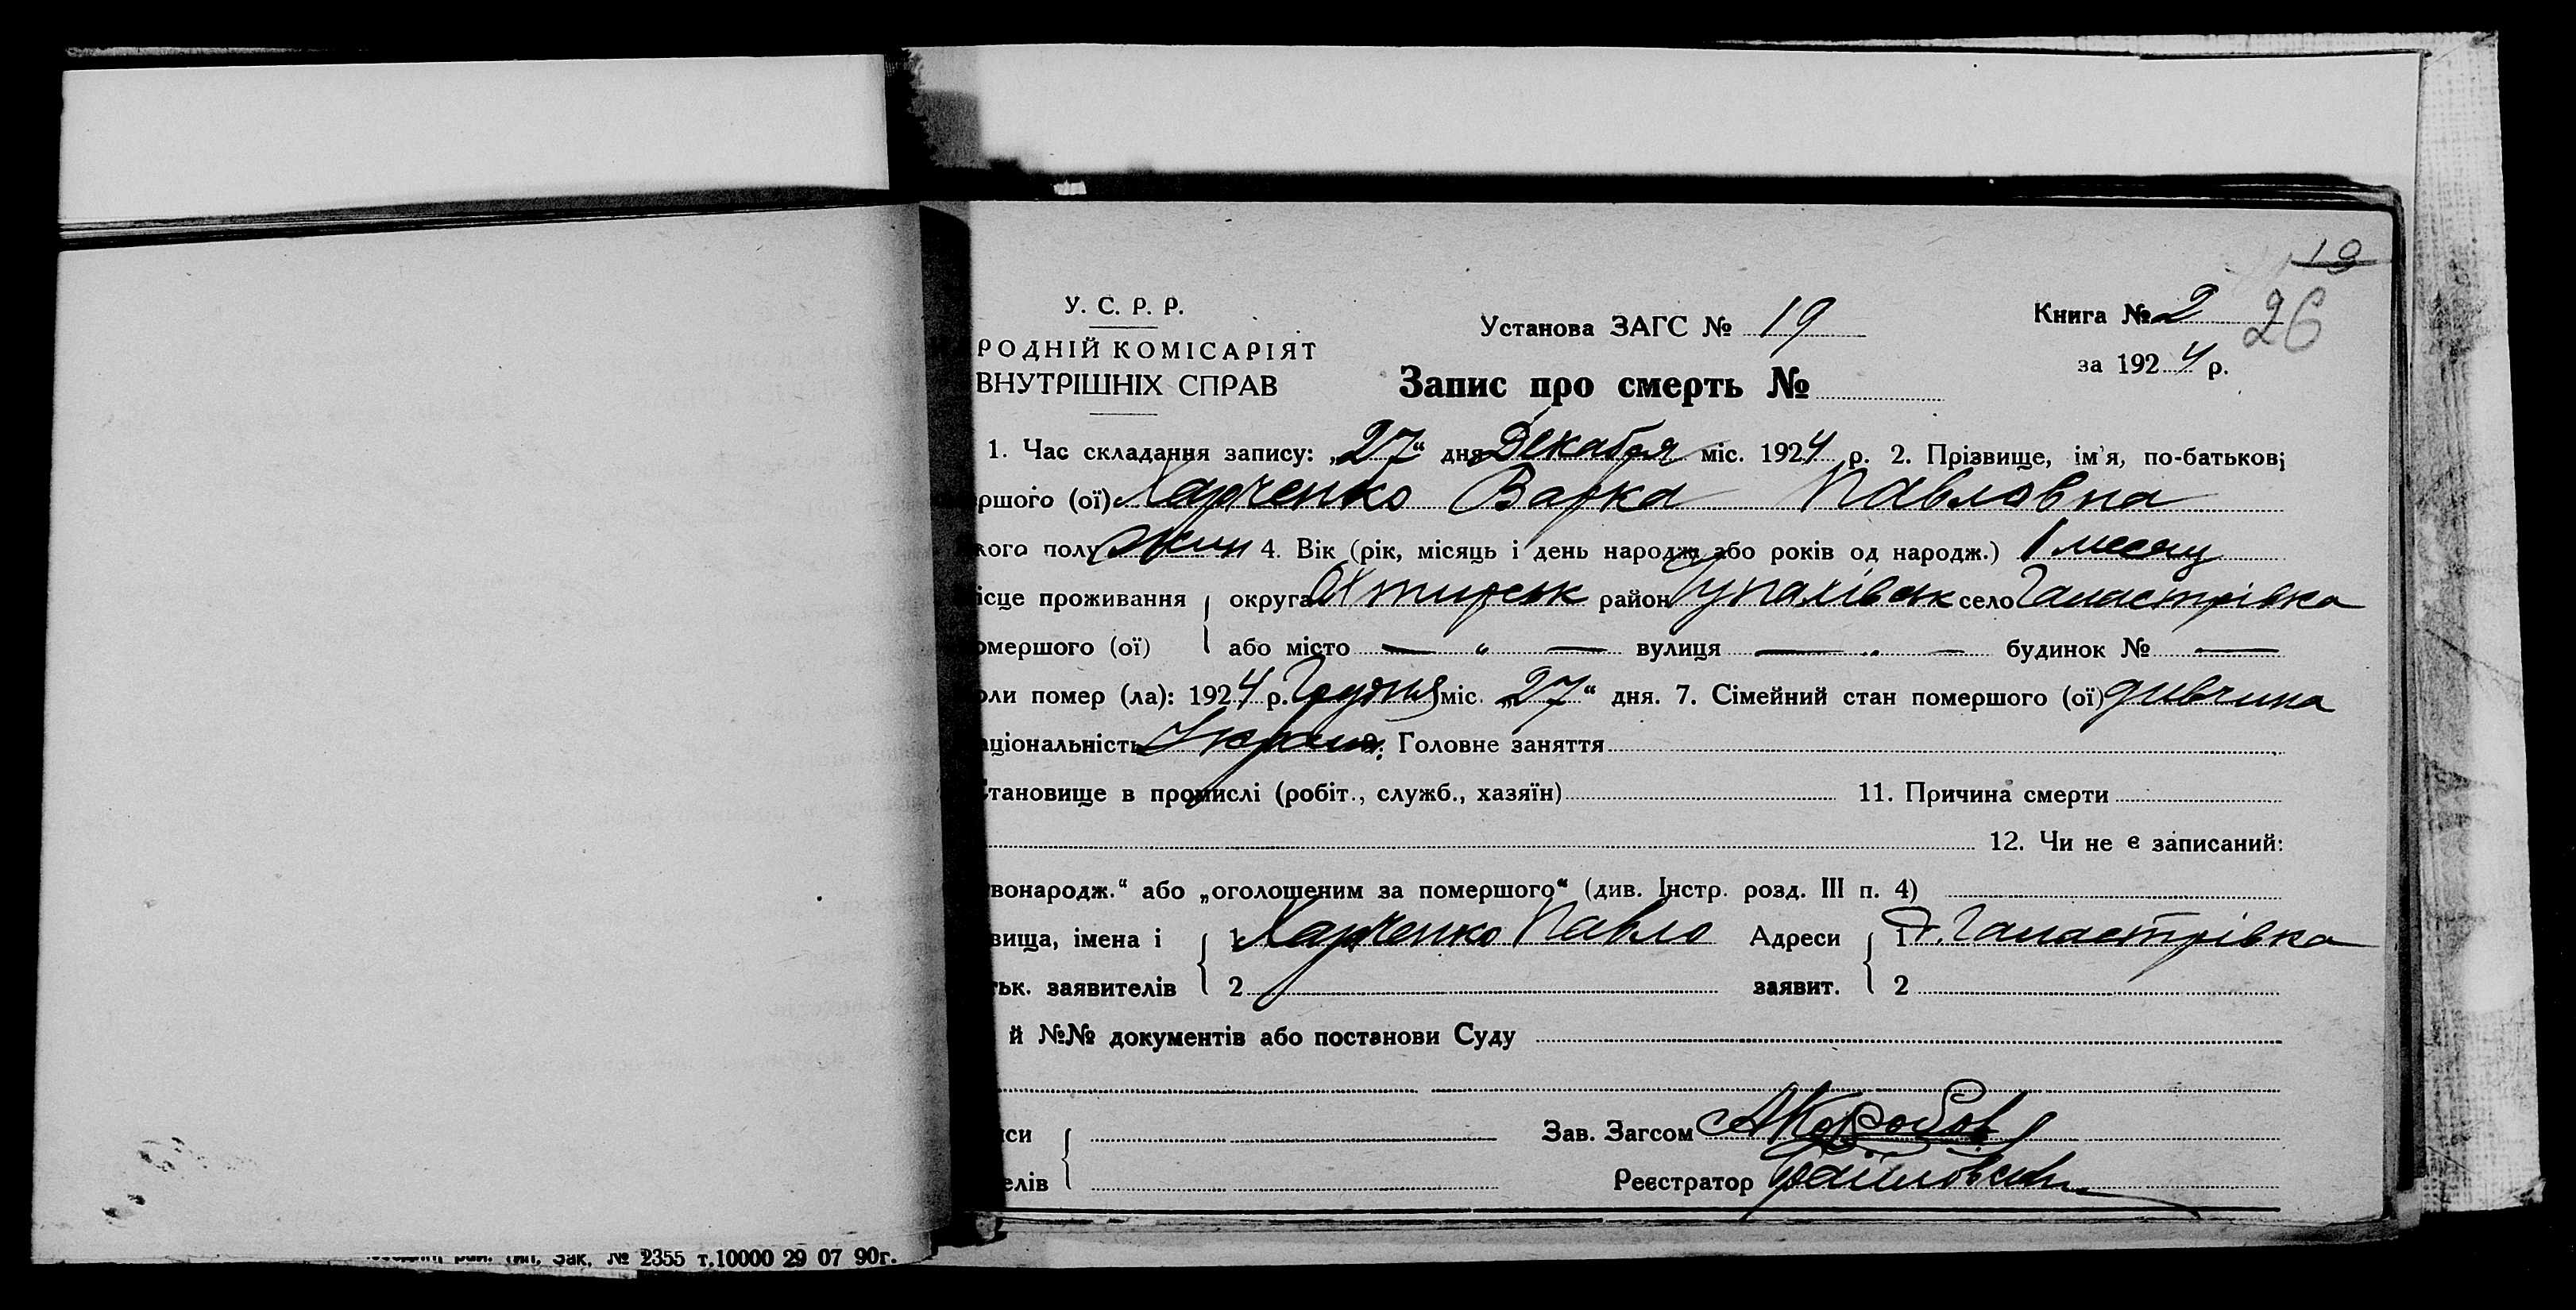 19
У. С. Р. Р.
Установа ЗАГС № 19
Книга № 2
26
РОДНІЙ КОМІСАРІЯТ
ВНУТРІШНІХ СПРАВ
за 1924 р.
Запис про смерть №
1. Час складання запису: „27“ дня Декабря міс. 1924 р. 2. Прізвище, ім'я, по-батькові
ршого (ої) Харченко Варка Павловна
кого полу жин 4. Вік (рік, місяць і день народж. або років од народж.) 1 месяц
ісце проживання округа Охтирськ район Чупахівськ село Гапастрівка
омершого (ої) або місто — „ — вулиця — „ — будинок № —
оли помер (ла): 1924 р. Грудня міс. „27“ дня. 7. Сімейний стан помершого (ої) дивчина
аціональність Україн. 9. Головне заняття
Становище в промислі (робіт., служб., хазяїн) 11. Причина смерти
12. Чи не є записаний:
вонародж.“ або „оголошеним за помершого“ (див. Інстр. розд. III п. 4)
вища, імена і 1 Харченко Павло Адреси 1 Гапастрівка
тьк. заявителів 2 заявит. 2
й №№ документів або постанови Суду
си Зав. Загсом
елів Реєстратор
Зак. № 2355 т.10000 29 07 90г.